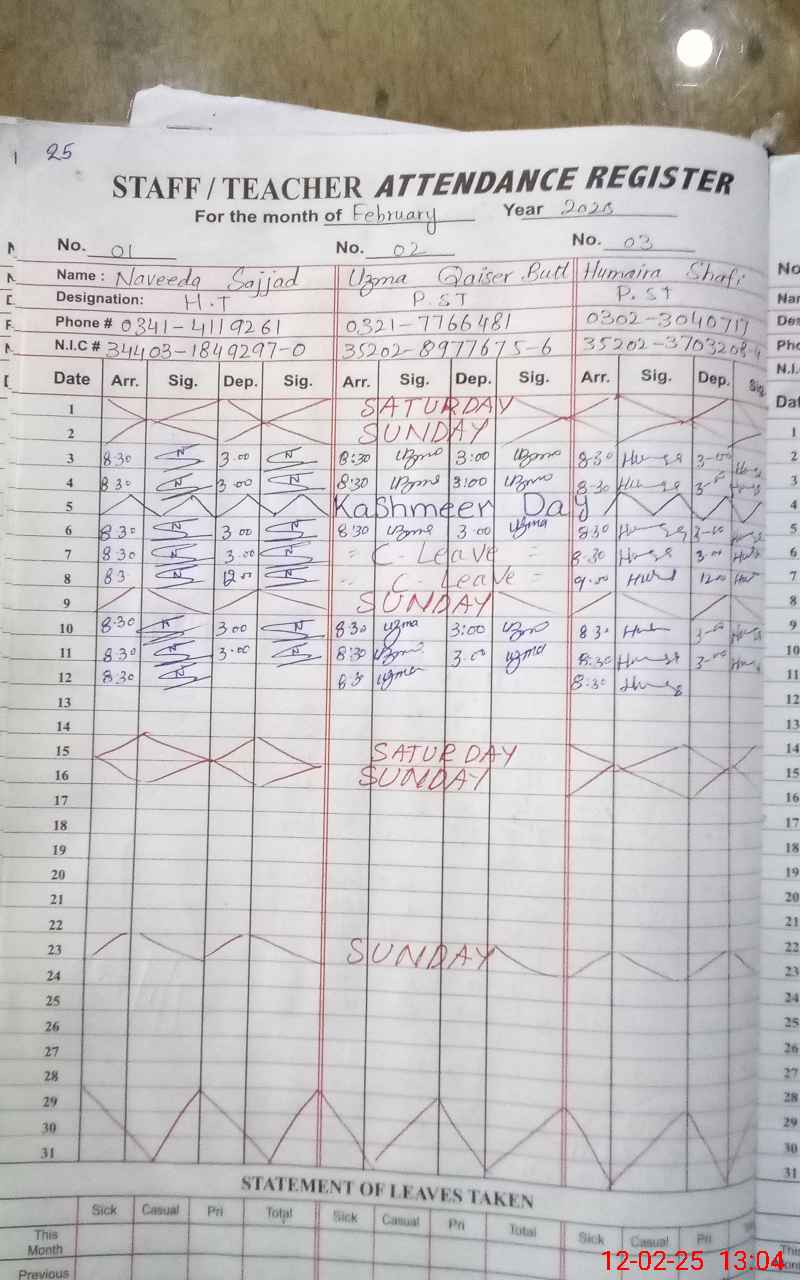 25
STAFF / TEACHER ATTENDANCE REGISTER
For the month of February Year 2025
No. 01 No. 02 No. 03
Name : Naveeda Sajjad Uzma Qaiser Butt Humaira Shafi
Designation: H.T P.ST P.ST
Phone # 0341-4119261 0321-7766481 0302-3040717
N.I.C # 34403-1849297-0 35202-8977675-6 35202-3703208-4
Date Arr. Sig. Dep. Sig. Arr. Sig. Dep. Sig. Arr. Sig. Dep. Sig
1 SATURDAY
2 SUNDAY
3 8.30 3.00 8:30 Uzma 3:00 Uzma 8.30 3-00
4 8.30 3.00 8:30 Uzma 3:00 Uzma 8-30 3-00
5 Kashmeer Day
6 8.30 3.00 8:30 Uzma 3.00 Uzma 8.30 3-00
7 8.30 3.00 = C. Leave = 8.30 3.00
8 83 12.00 C. Leave = 9.00 12.00
9 SUNDAY
10 8.30 3.00 8.30 Uzma 3:00 Uzma 8.30 3-00
11 8.30 3.00 8:30 Uzma 3.00 Uzma 8:30 3-00
12 8.30 8.3 Uzma 8:30
13
14
15 SATURDAY
16 SUNDAY
17
18
19
20
21
22
23 SUNDAY
24
25
26
27
28
29
30
31
STATEMENT OF LEAVES TAKEN
Sick Casual Pri Total Sick Casual Pri Total Sick Casual Pri
This Month
Previous
12-02-25 13:04